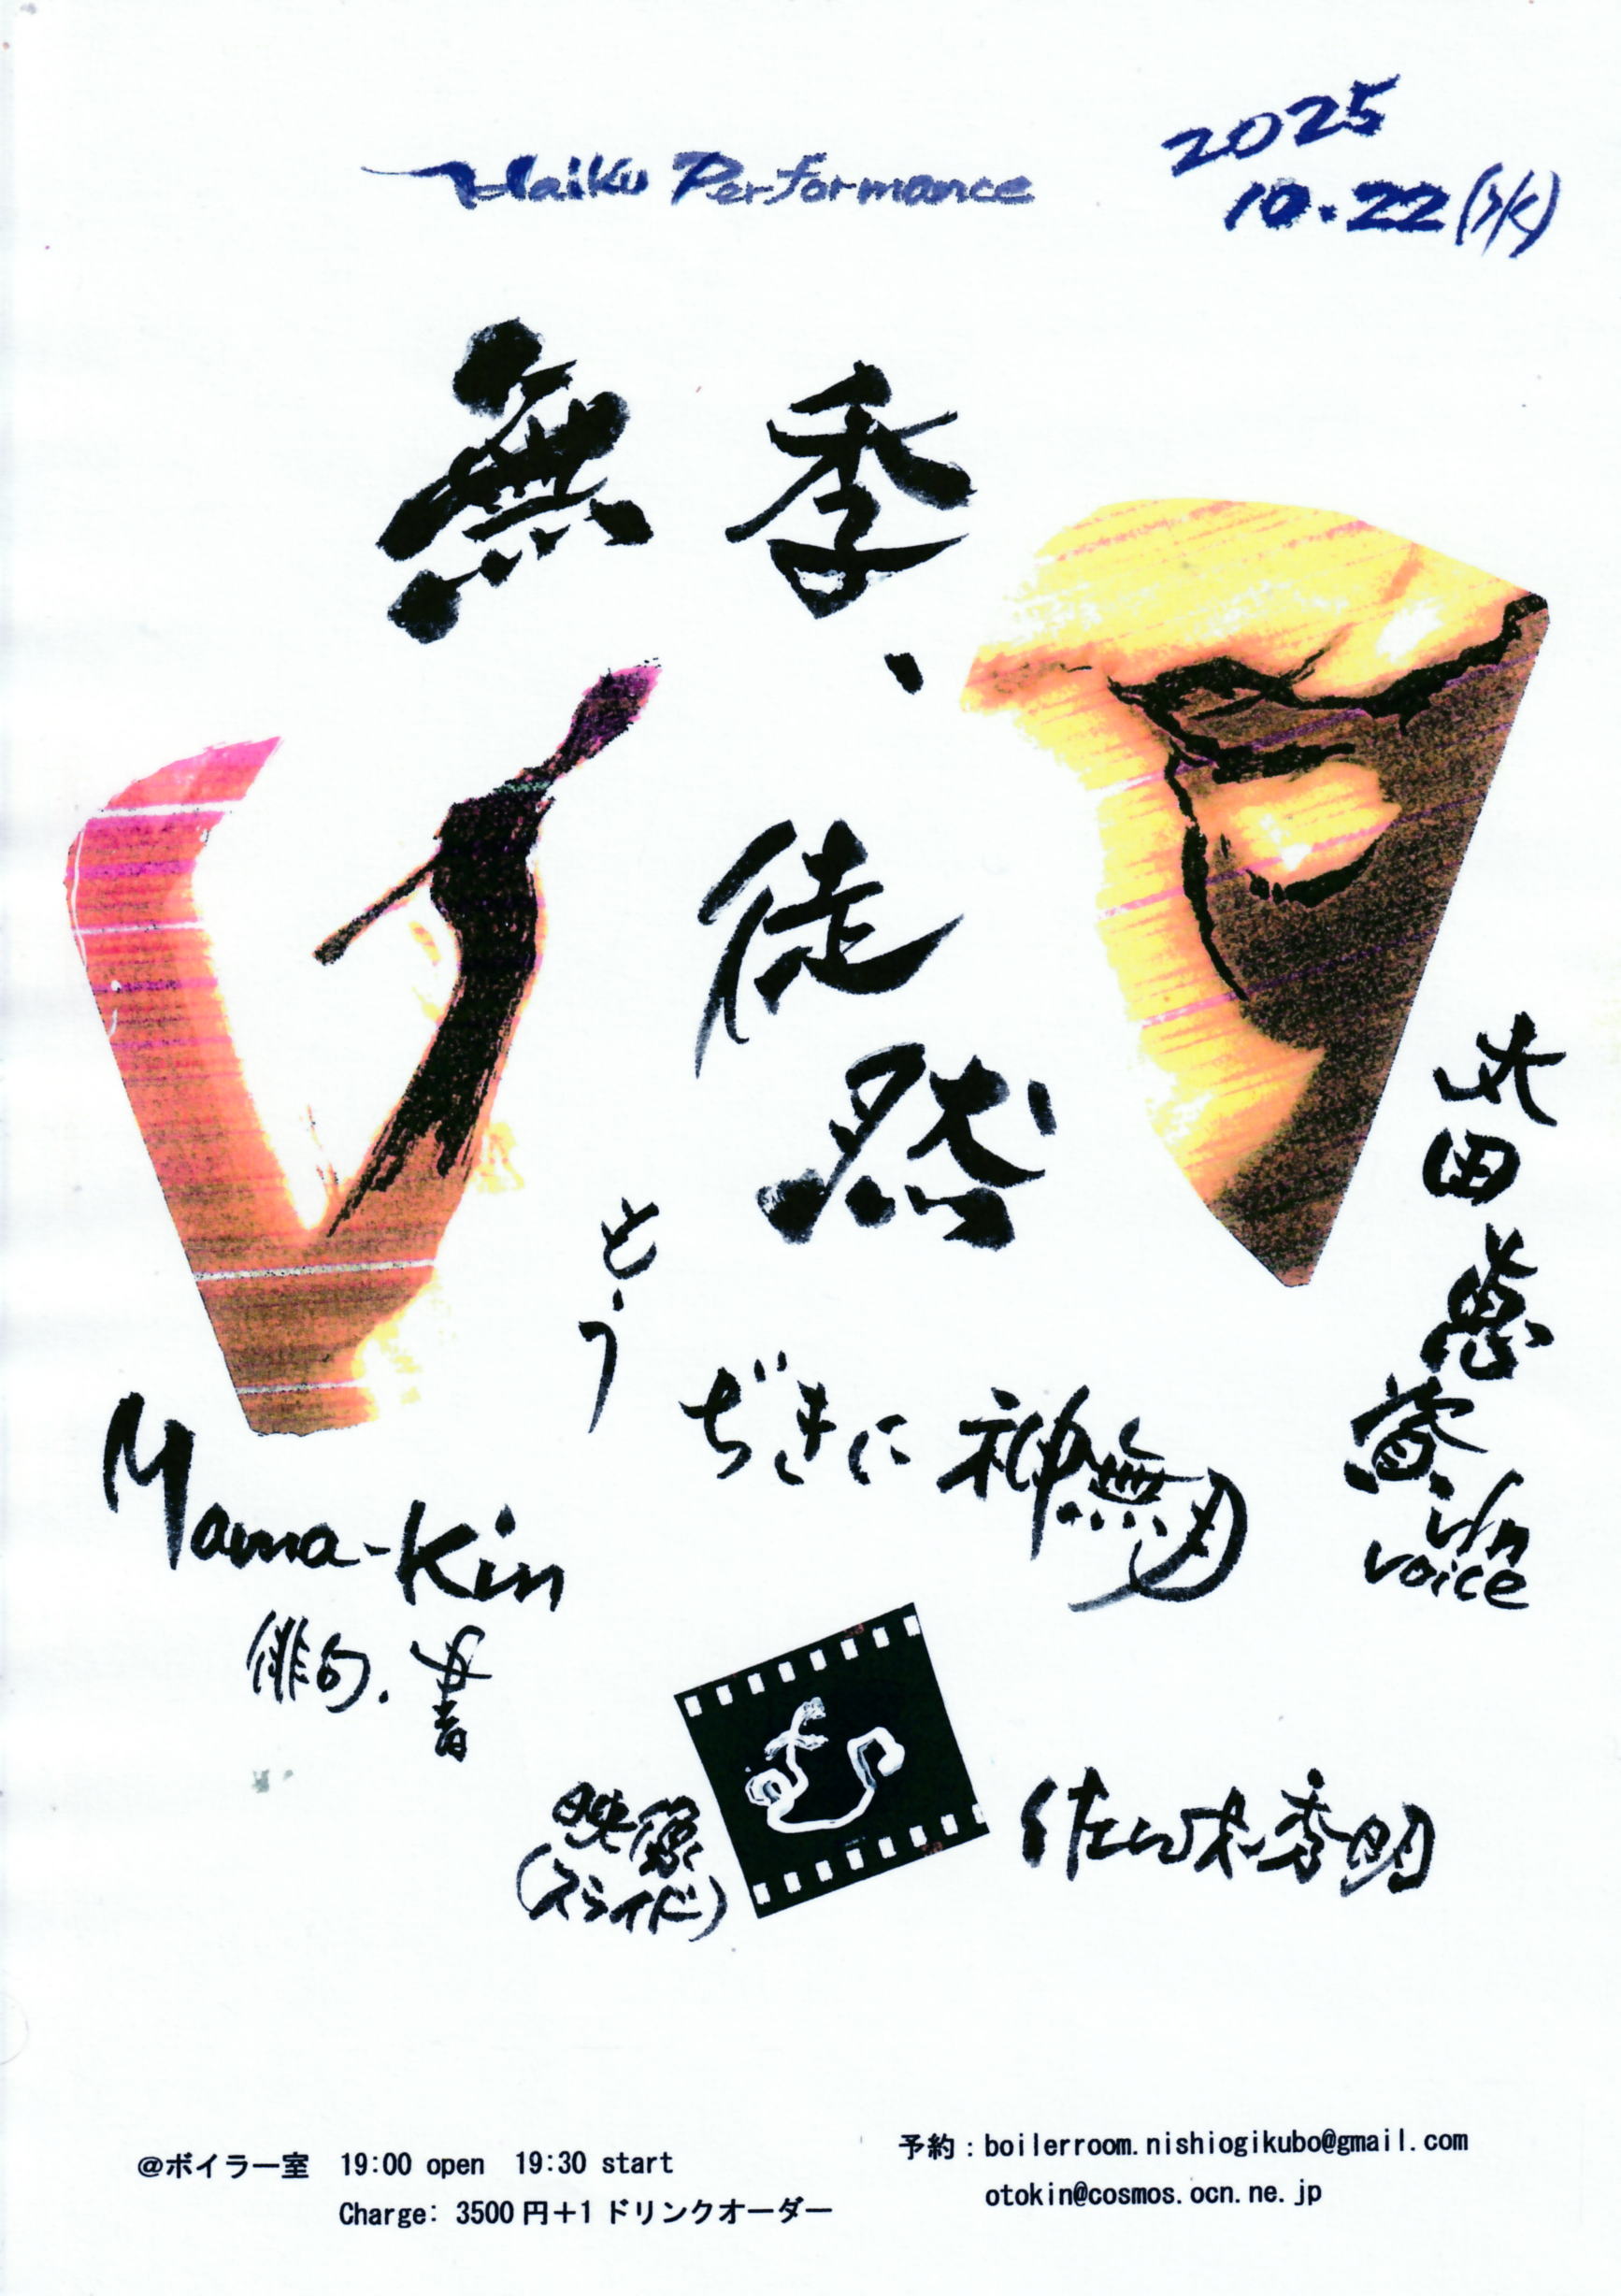 Haiku Performance
2025
10.22(水)
無季、
徒然
とう
ぢきに神無月
太田惠資
vln
voice
Mama-Kin
俳句.書
映像
(スライド)
佐々木秀明
@ボイラー室 19:00 open 19:30 start
Charge: 3500円+1ドリンクオーダー
予約:boilerroom.nishiogikubo@gmail.com
otokin@cosmos.ocn.ne.jp